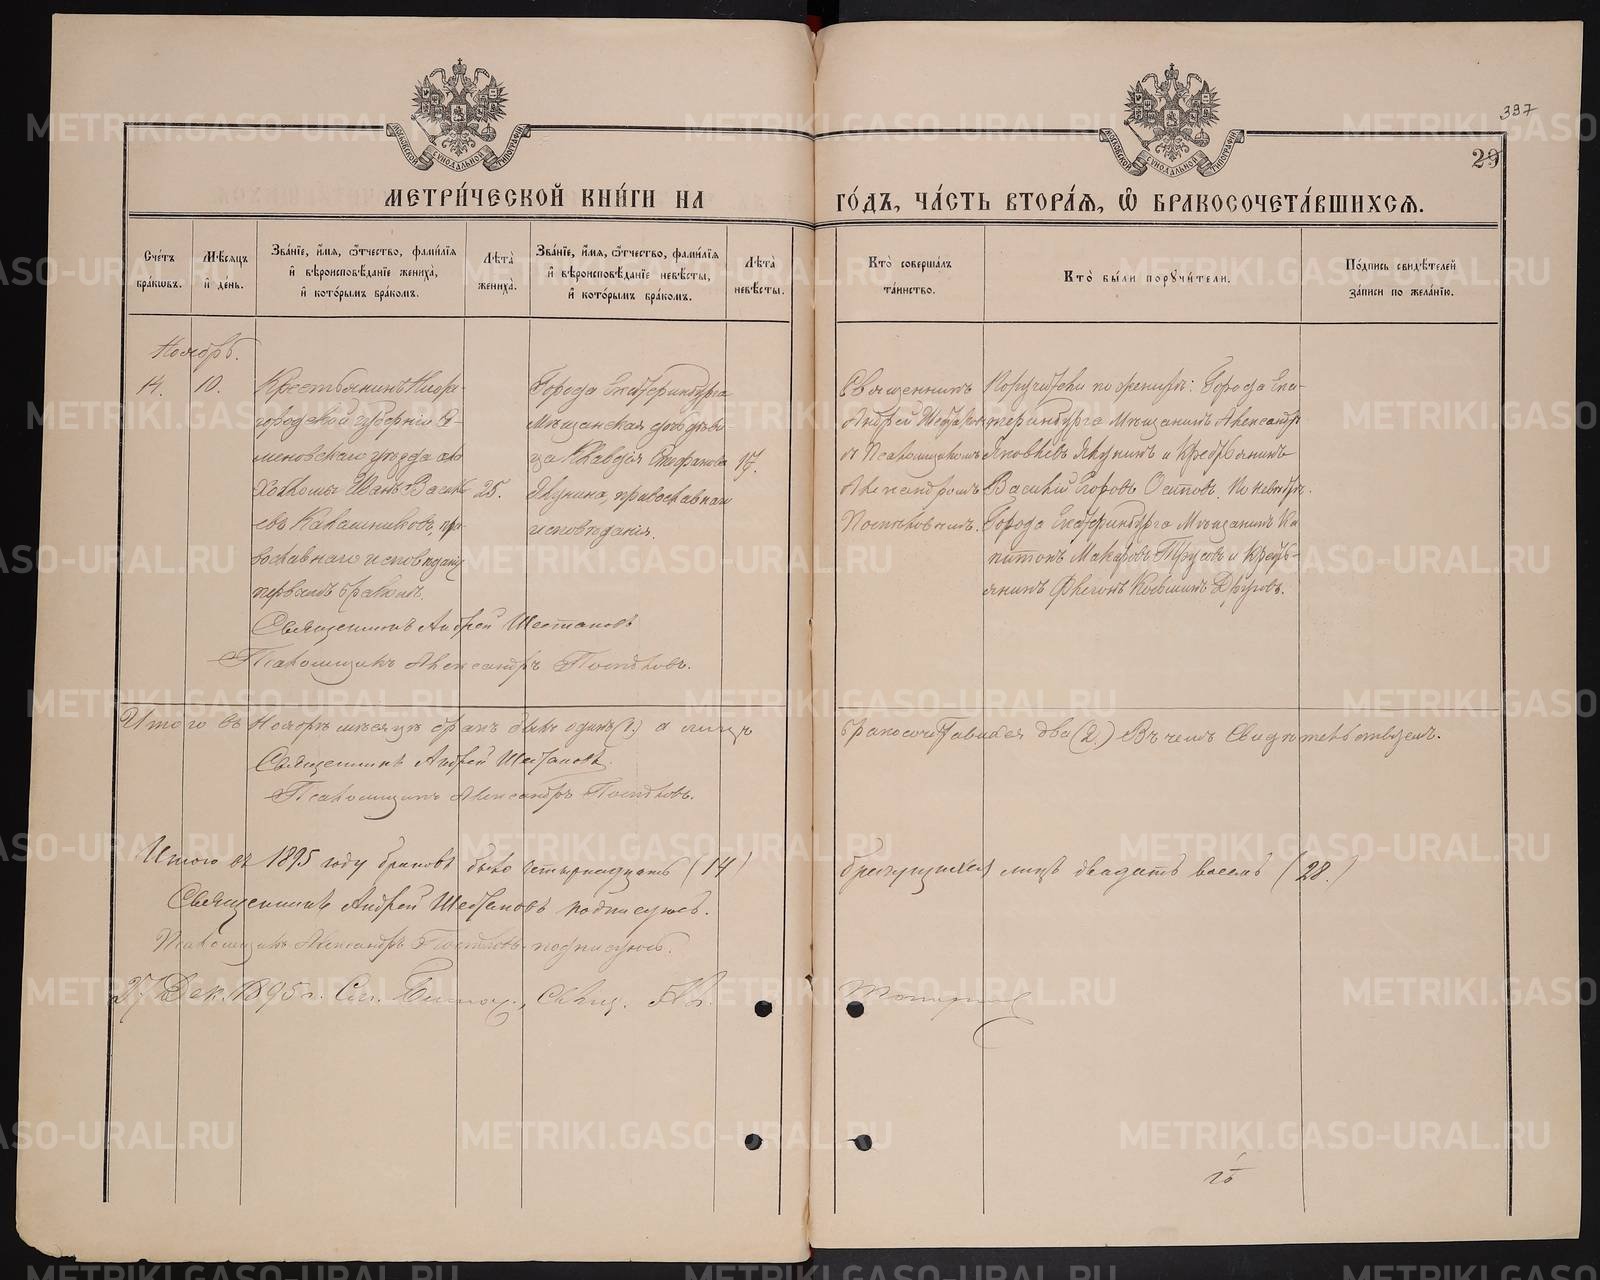 397
29
МОСКОВСКОЙ СѴНОДАЛЬНОЙ ТИПОГРАФІИ
МОСКОВСКОЙ СѴНОДАЛЬНОЙ ТИПОГРАФІИ
МЕТРИ́ЧЕСКОЙ КНИ́ГИ НА
ГО́ДЪ, ЧА́СТЬ ВТОРА́Я, Ѽ БРАКОСОЧЕТА́ВШИХСЯ.
Сче́тъ бра́кѡвъ.
Мѣ́сяцъ и҆ де́нь.
Зва́нїе, и҆́мя, ѻ҆́тчество, фами́лїя
и҆ вѣроисповѣ́данїе жениха̀,
и҆ кото́рымъ бра́комъ.
Лѣ́та жениха̀.
Зва́нїе, и҆́мя, ѻ҆́тчество, фами́лїя
и҆ вѣроисповѣ́данїе невѣ́сты,
и҆ кото́рымъ бра́комъ.
Лѣ́та невѣ́сты.
Кто̀ соверша́лъ
та́инство.
Кто̀ бы́ли порꙋчи́тели.
По́дпись свидѣ́телей
за́писи по жела́нїю.
Ноябрь.
14.
10.
Крестьянинъ Ниже-
городской губерніи Се-
меновскаго уѣзда
Иванъ Василь
евъ Калашниковъ, пра-
вославнаго исповѣданія
первымъ бракомъ.
25.
Города Екатеринбурга
Мѣщанская дочь дѣви-
ца Клавдія Епифанова
Якунина, православнаго
исповѣданія.
17.
Священникъ
Андрей Шестаковъ
съ Псаломщикомъ
Александромъ
Постниковымъ.
Поручители по женихѣ: Города Ека-
теринбурга Мѣщанинъ Александръ
Яковлевъ Якунинъ и Крестьянинъ
Василій Егоровъ Осиповъ. По невѣстѣ.
Города Екатеринбурга Мѣщанинъ Ка-
питонъ Макаровъ Трусовъ и Кресть-
янинъ
Священникъ Андрей Шестаковъ
Псаломщикъ Александръ Постниковъ.
Итого въ Ноябрѣ мѣсяцѣ бракъ былъ одинъ (1.) а лицъ
бракосочетавшихся два (2.) Въ чемъ свидѣтельствуемъ.
Священникъ Андрей Шестаковъ.
Псаломщикъ Александръ Постниковъ.
Итого въ 1895 году браковъ было четырнадцать (14)
лицъ двадцать восемь (28.)
Священникъ Андрей Шестаковъ подписуюсь.
Псаломщикъ Александръ Постниковъ подписуюсь.
27 Дек. 1895 г.
METRIKI.GASO-URAL.RU